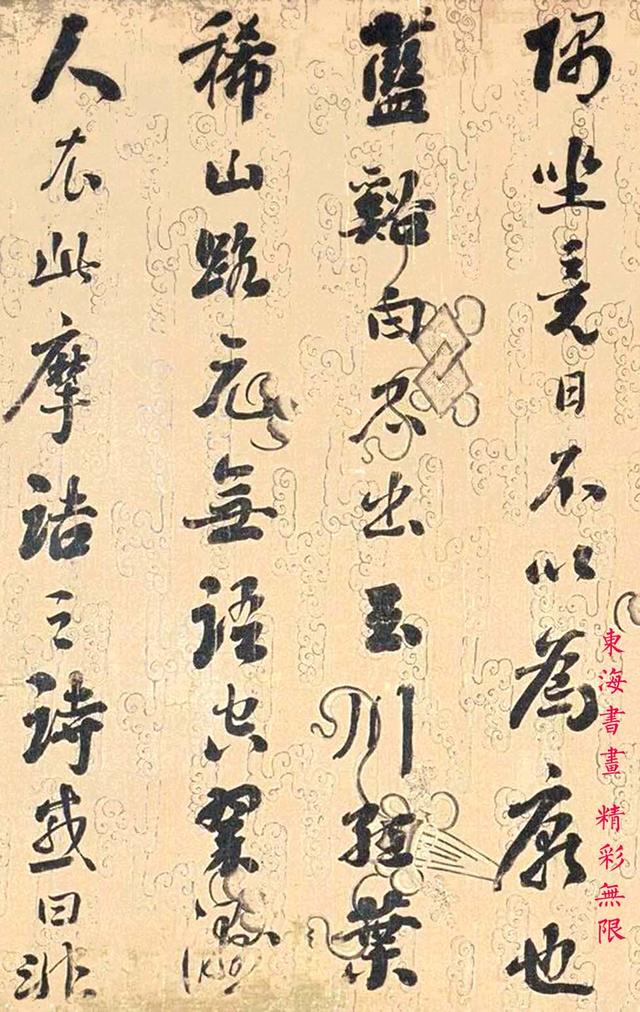 隅坐竟日不以為康也
藍谿白石出玉川紅葉
稀山路元無語空翠濕
人衣此摩詰之詩或曰非
東海書畫 精彩無限